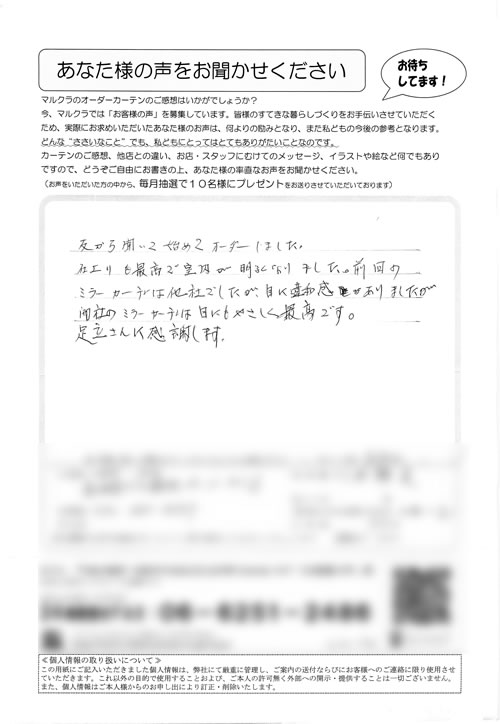 あなた様の声をお聞かせください
お待ち
してます!
マルクラのオーダーカーテンのご感想はいかがでしょうか?
今、マルクラでは「お客様の声」を募集しています。皆様のすてきな暮らしづくりをお手伝いさせていただく
ため、実際にお求めいただいたあなた様のお声は、何よりの励みとなり、また私どもの今後の参考となります。
どんな“ささいなこと”でも、私どもにとってはとてもありがたいことなのです。
カーテンのご感想、他店との違い、お店・スタッフにむけてのメッセージ、イラストや絵など何でもあり
ますので、どうぞご自由にお書きの上、あなた様の率直なお声をお聞かせください。
(お声をいただいた方の中から、毎月抽選で10名様にプレゼントをお送りさせていただいております)
友から聞いて始めてオーダーしました。
仕上りも最高で室内が明るくなりました。前回の
ミラーカーテンは他社でしたが、目に違和感がありましたが
御社のミラーカーテンは目にもやさしく最高です。
足立さんに感謝します。
≪個人情報の取り扱いについて≫
この用紙にご記入いただきました個人情報は、弊社にて厳重に管理し、ご案内の送付ならびにお客様へのご連絡に限り使用させ
ていただきます。これ以外の目的で使用することおよび、ご本人の許可無く外部への開示・提供することは一切ございません。
また、個人情報はご本人様からのお申し出により訂正・削除いたします。